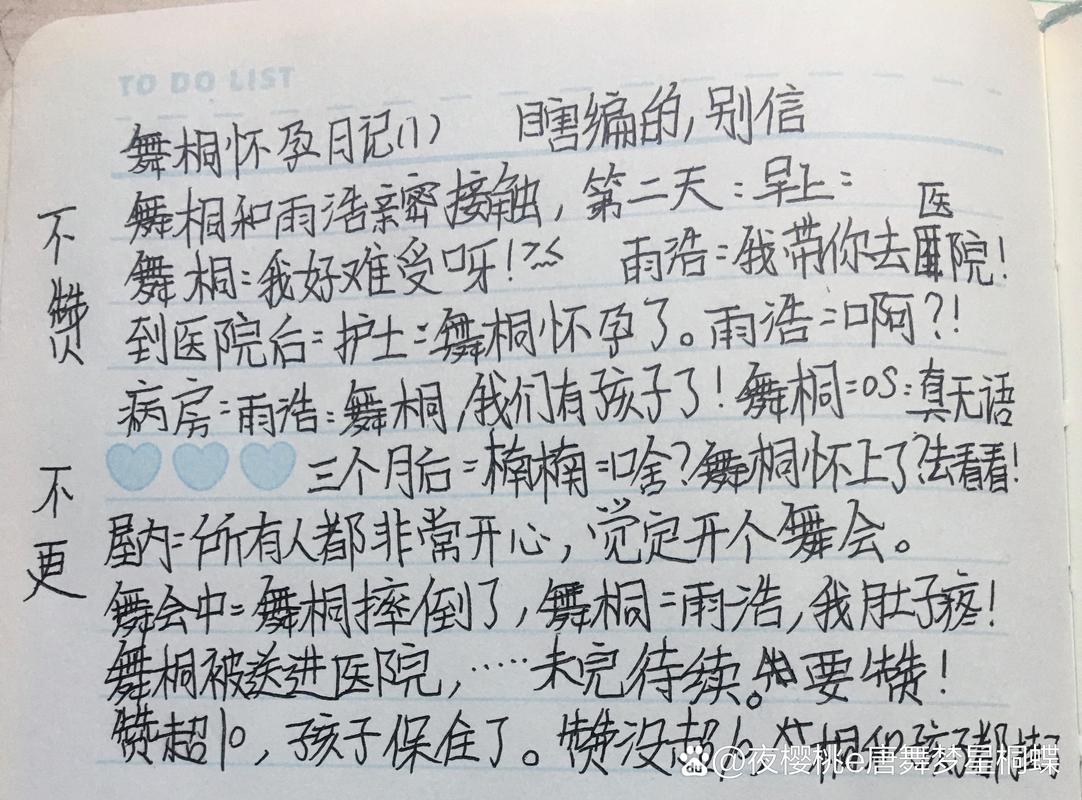 TO DO LIST
舞桐怀孕月记(1) 瞎编的,别信
舞桐和雨浩亲密接触,第二天:早上:
医
舞桐:我好难受呀! 雨浩:我带你去医院!
到医院后:护士:舞桐怀孕了。雨浩:啊?!
病房:雨浩:舞桐,我们有孩子了!舞桐:OS:真无语
三个月后:楠楠:啥?舞桐怀上了?去看看!
屋内:所有人都非常开心,觉定开个舞会。
舞会中:舞桐摔倒了,舞桐:雨浩,我肚子疼!
舞桐被送进医院,……未完待续。要赞!
赞超10,孩子保住了。赞没超10,舞桐和孩子都
不赞
不更
@夜樱桃e唐舞梦星桐蝶